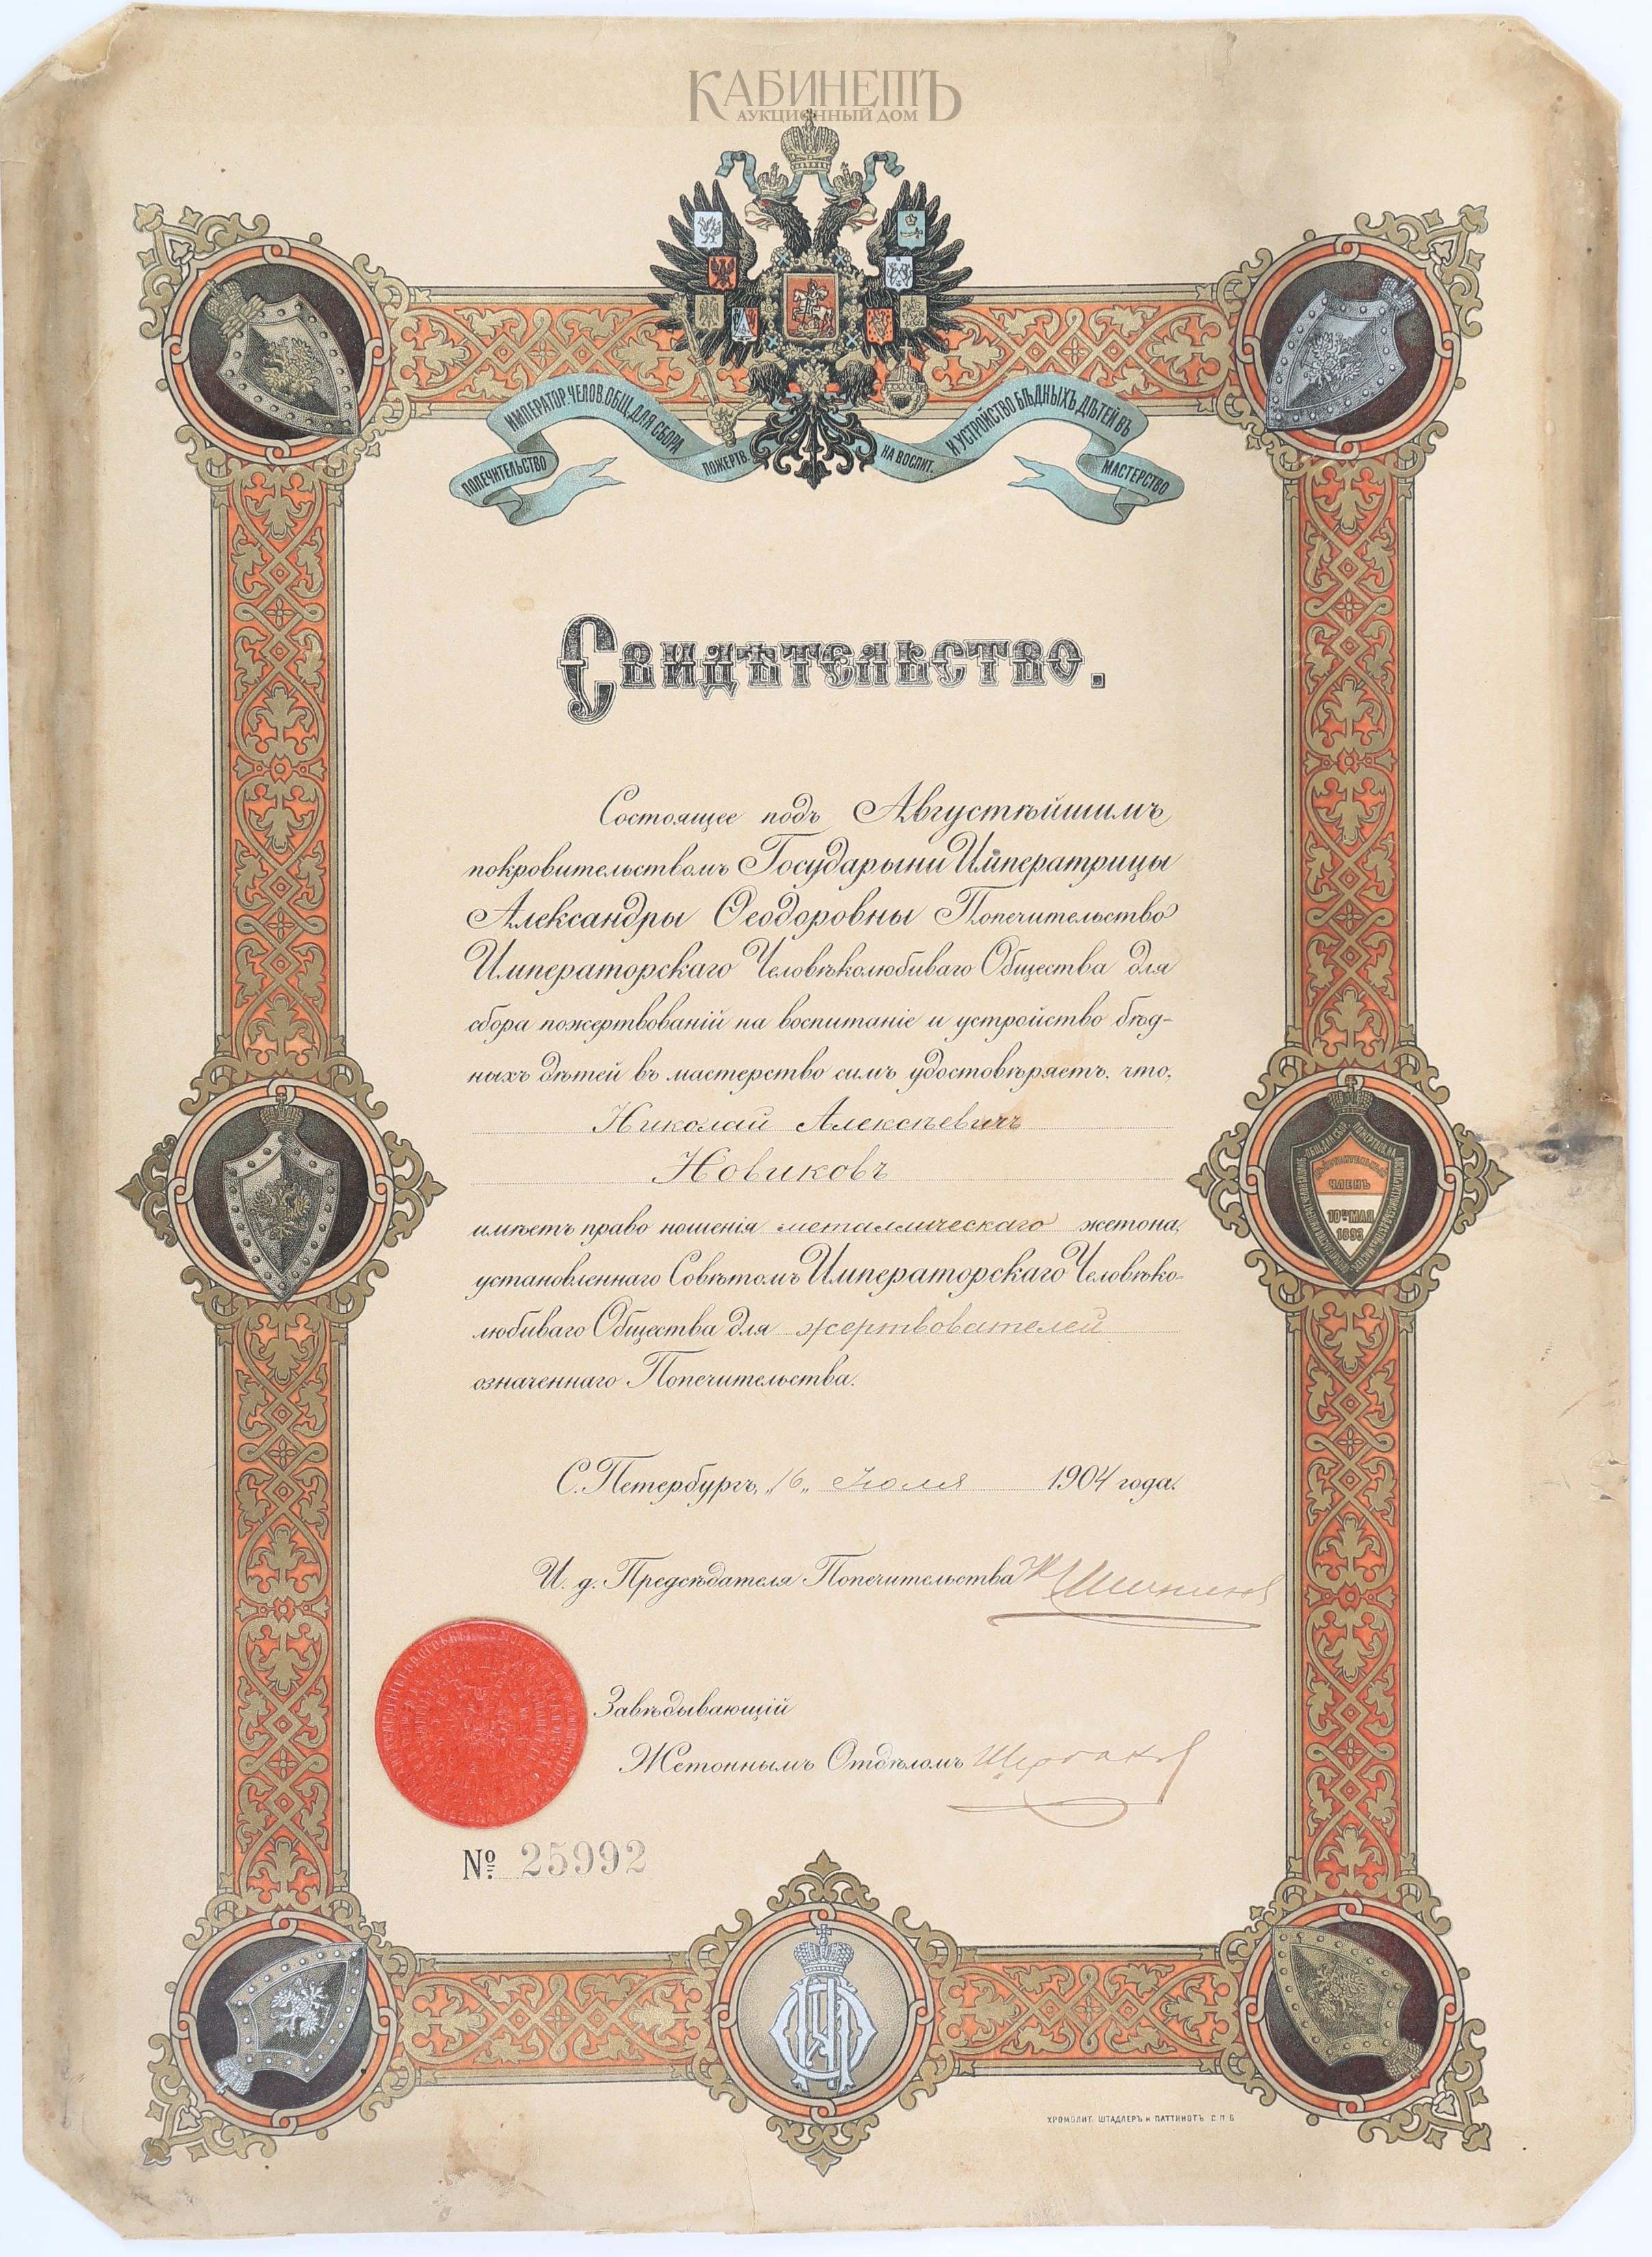 КАБИНЕТЪ
АУКЦИОННЫЙ ДОМ
ПОПЕЧИТЕЛЬСТВО ИМПЕРАТОР. ЧЕЛОВ. ОБЩ. ДЛЯ СБОРА ПОЖЕРТВ. НА ВОСПИТ. И УСТРОЙСТВО БѢДНЫХЪ ДѢТЕЙ ВЪ МАСТЕРСТВО
Свидѣтельство.
Состоящее подъ Августѣйшимъ
покровительствомъ Государыни Императрицы
Александры Ѳеодоровны Попечительство
Императорскаго Человѣколюбиваго Общества для
сбора пожертвованій на воспитаніе и устройство бѣд-
ныхъ дѣтей въ мастерство симъ удостовѣряетъ, что,
Николай Алексѣевичъ
Новиковъ
имѣетъ право ношенія металлическаго жетона,
установленнаго Совѣтомъ Императорскаго Человѣко-
любиваго Общества для жертвователей
означеннаго Попечительства.
ЧЛЕНЪ
10го МАЯ
1893
С. Петербургъ, „16„ Іюля 1904 года.
И. д. Предсѣдателя Попечительства
Завѣдывающій
Жетоннымъ Отдѣломъ
№ 25992
ХРОМОЛИТ. ШТАДЛЕРЪ и ПАТТИНОТЪ С.П.Б.